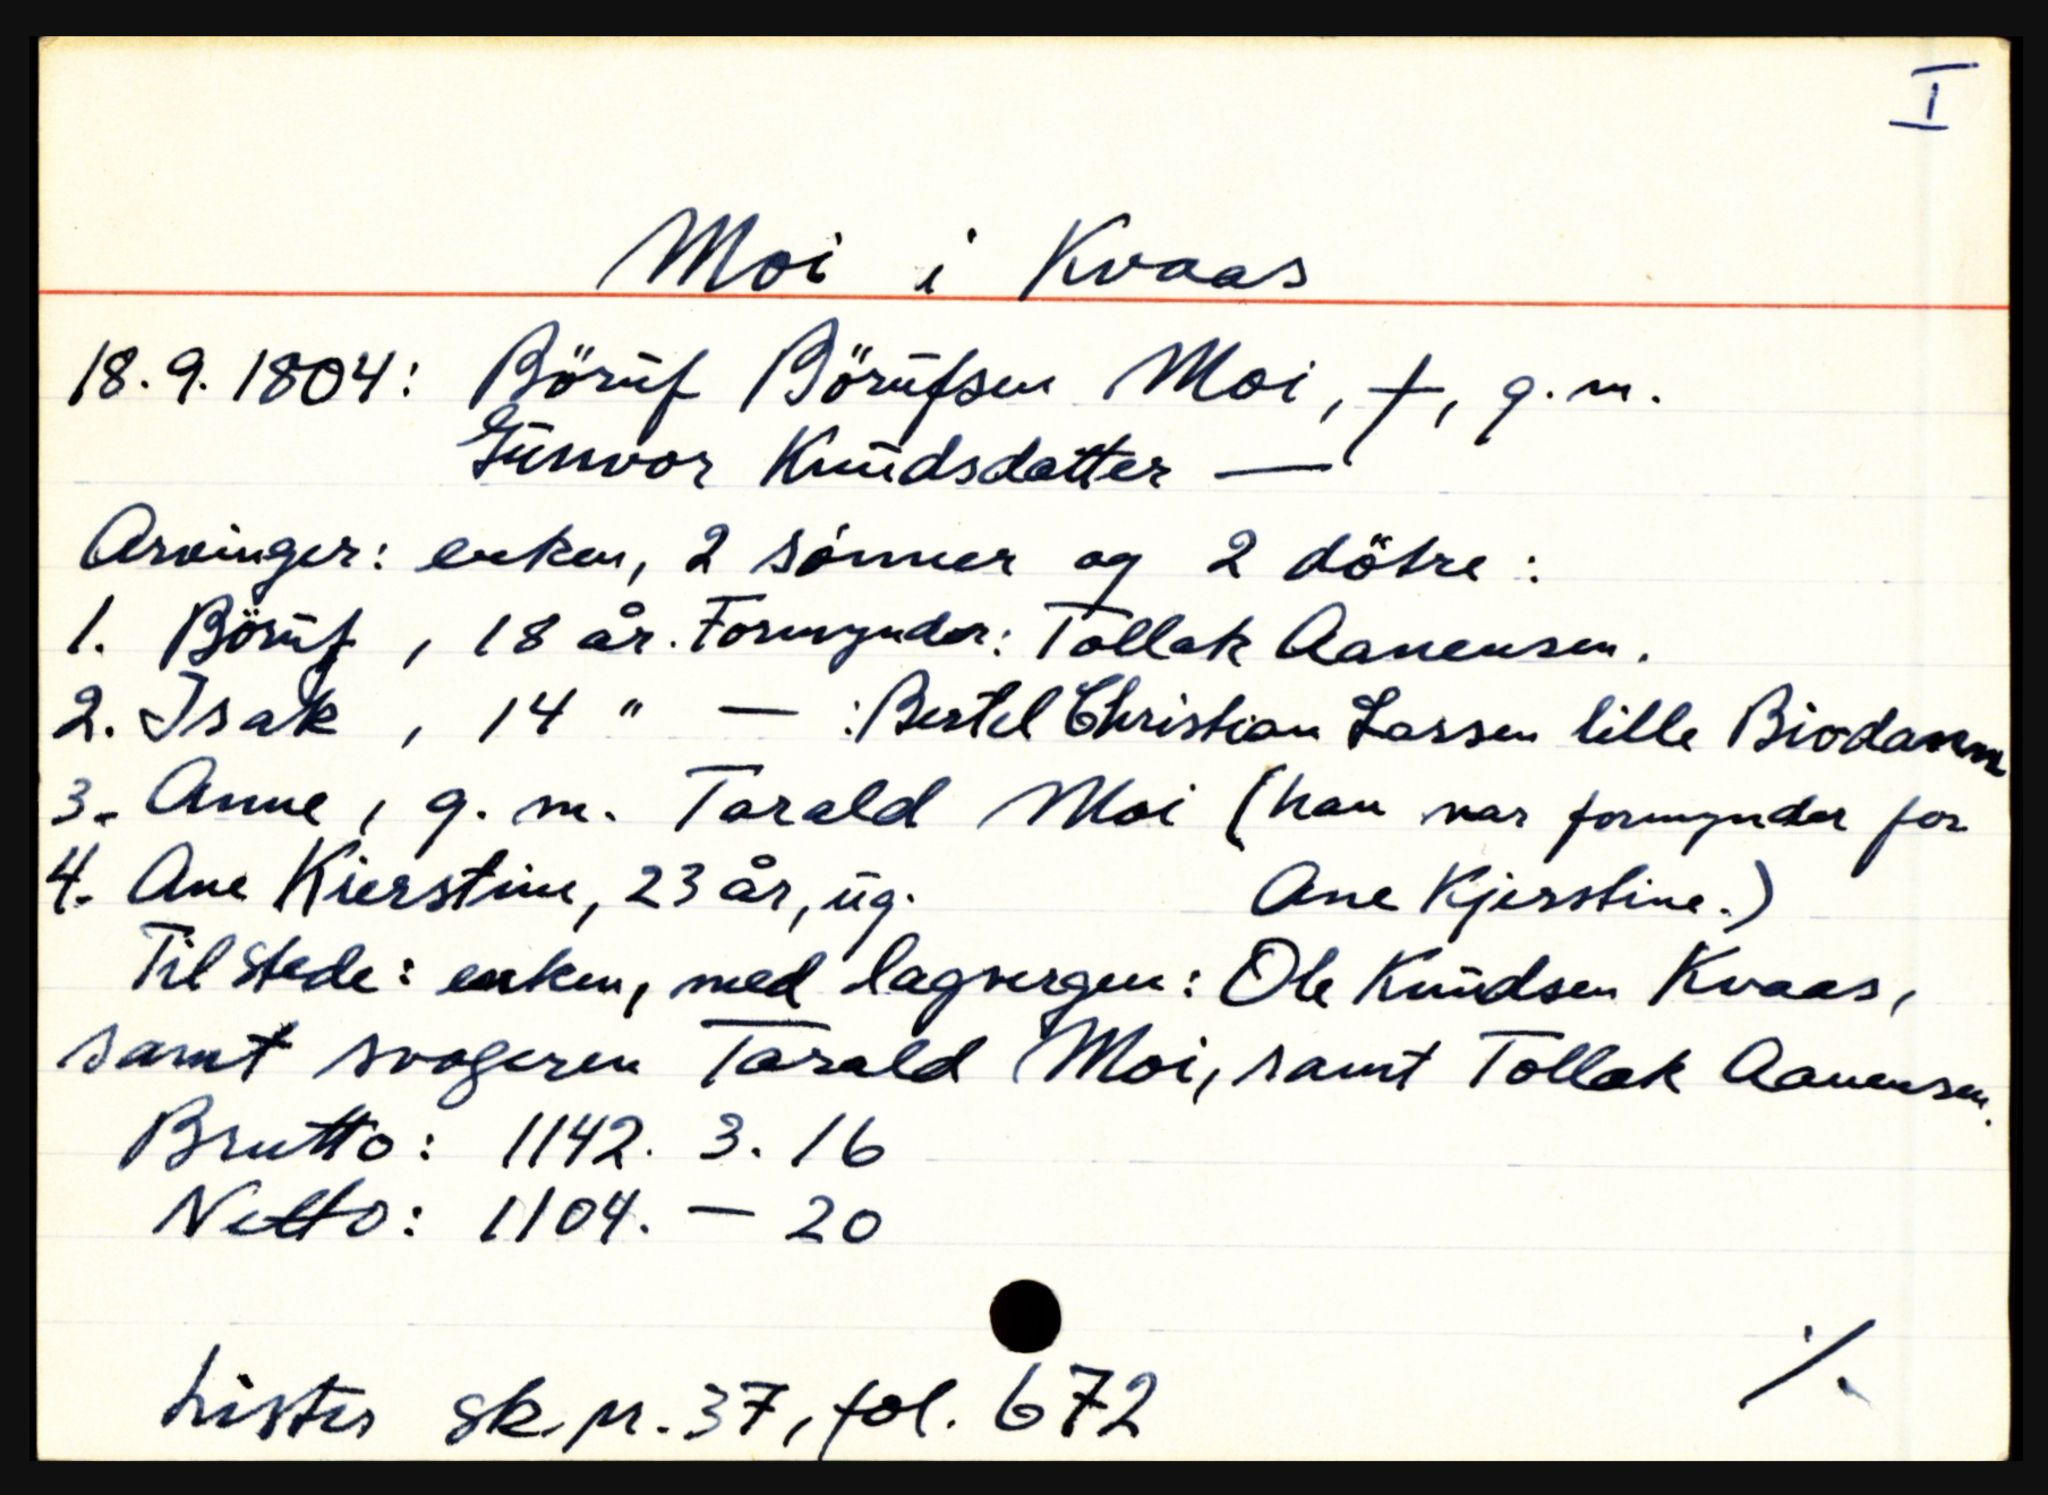 I
Moi i Kvaas
18.9.1804: Börüf Börüfsen Moi, †, g.m.
Günvor Knüdsdatter —
Arvinger: enken, 2 sönner og 2 dötre:
1. Börüf, 18 år. Formynder: Tollak Aanensen.
2. Isak, 14 " — : Bertel Christian Larsen lille Birodamm
3. Anne, g. m. Tarald Moi (han var formynder for
4. Ane Kierstine, 23 år, üg. Ane Kjerstine.)
Tilstede: enken, med lagvergen: Ole Knüdsen Kvaas,
samt svogeren Tarald Moi, samt Tollak Aanensen.
Brutto: 1142. 3. 16
Netto: 1104. — 20
Lister sk.pr. 37, fol. 672
./.